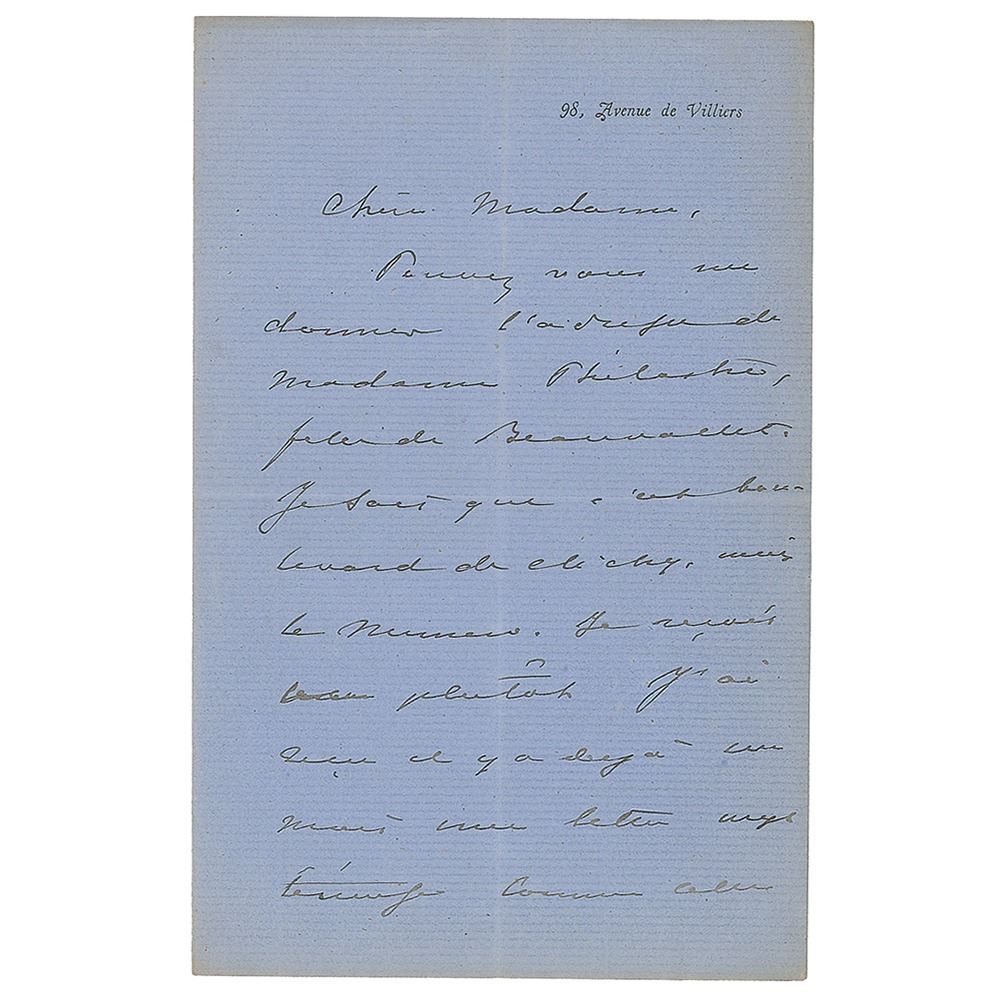 98, Avenue de Villiers
Chère Madame,
Pouvez vous me
donner l'adresse de
Madame Philastre,
fille de Beauvallet.
Je sais que c'est bou-
levard de clichy, mais
le numero. Je reçois
plutôt j'ai
reçu il y a dejà un
mois une lettre mys
térieuse comme celle